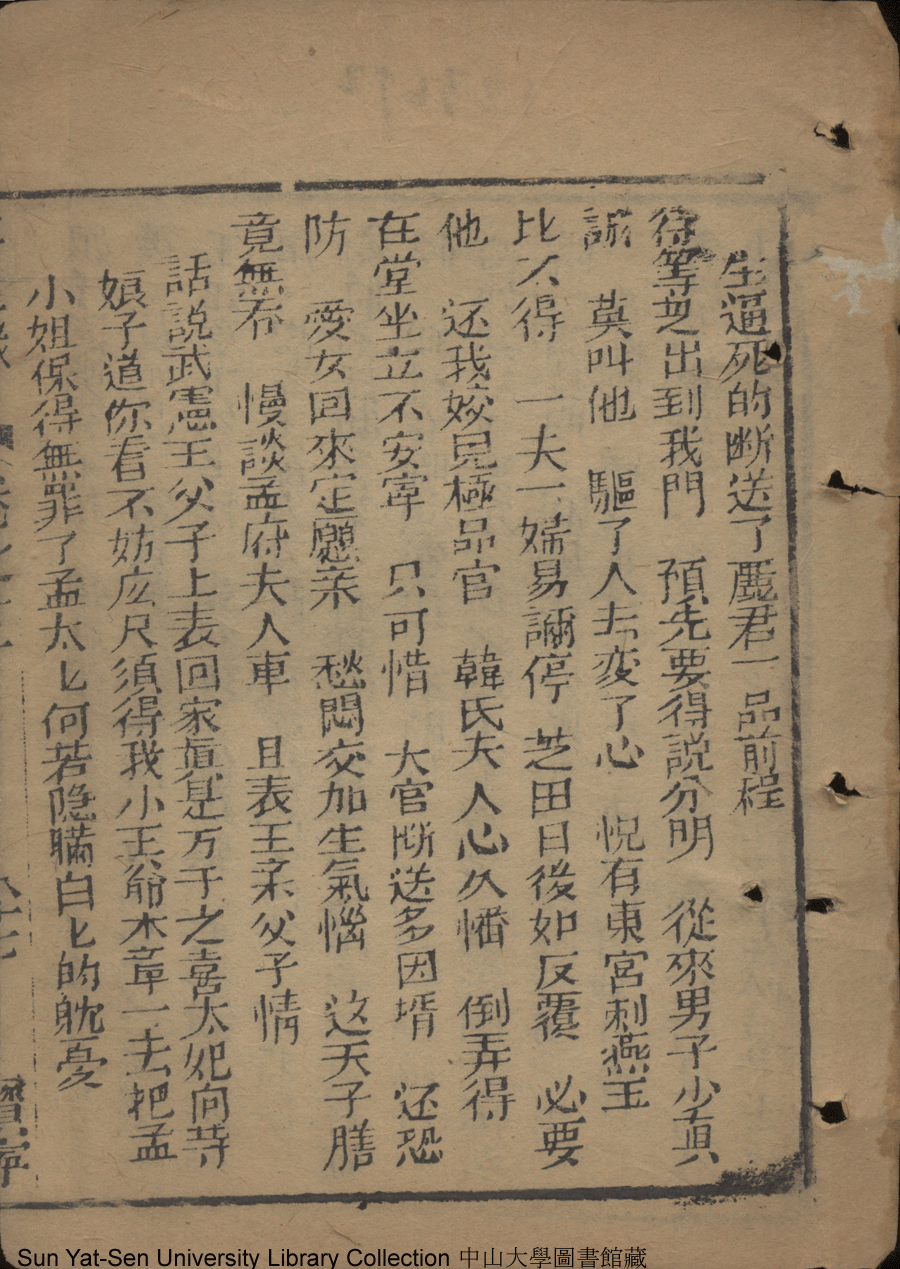 生逼死的断送了麗君一品前程
待等芝出到我門　預先要得説分明　從來男子少真
誠　莫叫他　驅了人去変了心　怳有東宮刺燕玉
比不得　一夫一婦易謫停　芝田日後如反覆　必要
他　还我姣見極品官　韓氏夫人心久懆　倒弄得
在堂坐立不安寧　只可惜　大官断送多因壻　还恐
防　愛女回來定願亲　愁悶交加生氣惱　这天子膳
竟無存　慢談孟府夫人車　且表王亲父子情
話説武憲王父子上表回家眞是万千之喜太妃向等
娘子道你看不妨広尺須得我小王爺本章一去把孟
小姐保得無罪了孟太匕何若隐瞞白匕的躭憂
Sun Yat-Sen University Library Collection 中山大學圖書館藏